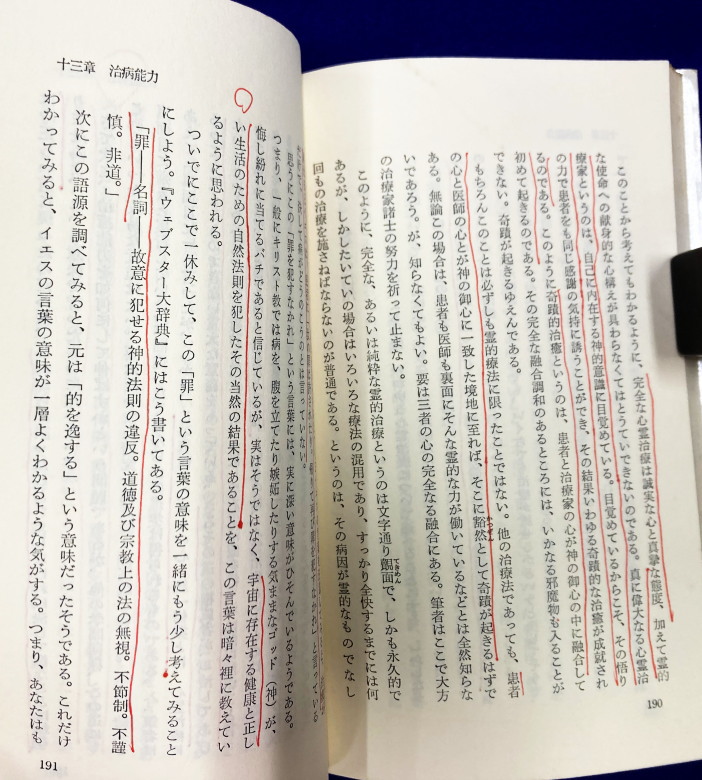 このことから考えてもわかるように、完全な心霊治療は誠実な心と真摯な態度、加えて霊的
な使命への献身的な心構えが具わらなくてはとうていできないのである。真に偉大なる心霊治
療家というのは、自己に内在する神的意識に目覚めている。目覚めているからこそ、その悟り
の力で患者をも同じ感謝の気持に誘うことができ、その結果いわゆる奇蹟的な治癒が成就され
るのである。このように奇蹟的治癒というのは、患者と治療家の心が神の御心の中に融合して
初めて起きるのである。その完全な融合調和のあるところには、いかなる邪魔物も入ることが
できない。奇蹟が起きるゆえんである。
もちろんこのことは必ずしも霊的療法に限ったことではない。他の治療法であっても、患者
の心と医師の心とが神の御心に一致した境地に至れば、そこに豁然として奇蹟が起きるはずで
ある。無論この場合は、患者も医師も裏面にそんな霊的な力が働いているなどとは全然知らな
いであろう。が、知らなくてもよい。要は三者の心の完全なる融合にある。筆者はここで大方
の治療家諸士の努力を祈って止まない。
このように、完全な、あるいは純粋な霊的治療というのは文字通り覿面で、しかも永久的で
てきめん
あるが、しかしたいていの場合はいろいろな療法の混用であり、すっかり全快するまでには何
回もの治療を施さねばならないのが普通である。というのは、その病因が霊的なものでなし
190
十三章 治病能力
思うにこの「罪を犯すなかれ」という言葉には、実に深い意味がひそんでいるようである。
つまり、一般にキリスト教では病を、腹を立てたり嫉妬したりする気ままなゴッド（神）が、
悔し紛れに当てるバチであると信じているが、実はそうではなく、宇宙に存在する健康と正し
い生活のための自然法則を犯したその当然の結果であることを、この言葉は暗々裡に教えてい
るように思われる。
ついでにここで一休みして、この「罪」という言葉の意味を一緒にもう少し考えてみること
にしよう。『ウェブスター大辞典』にはこう書いてある。
「罪――名詞――故意に犯せる神的法則の違反。道徳及び宗教上の法の無視。不節制。不謹
慎。非道。」
次にこの語源を調べてみると、元は「的を逸する」という意味だったそうである。これだけ
わかってみると、イエスの言葉の意味が一層よくわかるような気がする。つまり、あなたはも
191